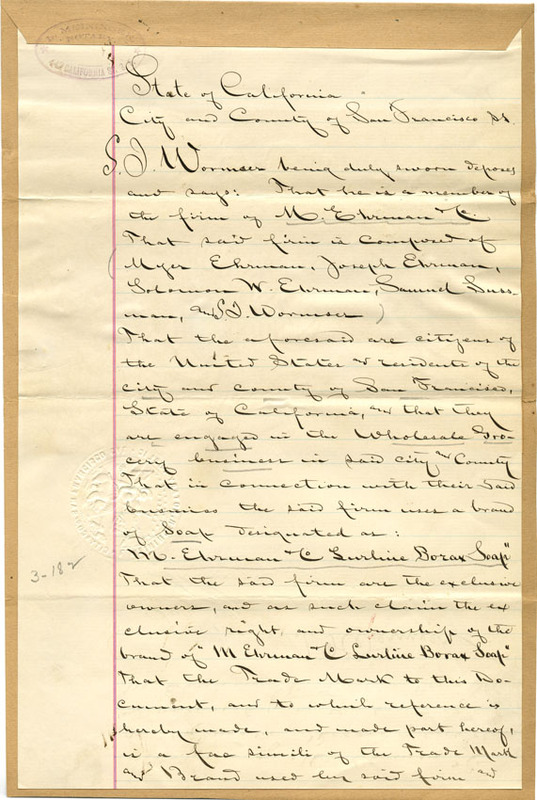 CALIFORNIA
State of California
City and County of San Francisco ss.
S. I. Wormser being duly sworn deposes
and says: That he is a member of
the firm of M. Ehrman & C.
That said firm is composed of
(Myer Ehrman, Joseph Ehrman,
Solomon W. Ehrman, Samuel Suss-
man, and S. I. Wormser)
That the aforesaid are citizens of
the United States & residents of the
city and county of San Francisco,
State of California, and that they
are engaged in the Wholesale Gro-
cery business in said city and County
That in connection with their said
business the said firm uses a brand
of Soap designated as:
"M. Ehrman & C Lurline Borax Soap"
3-182
That the said firm are the exclusive
owners, and as such claim the ex
clusive right and ownership of the
brand of "M Ehrman & C Lurline Borax Soap"
That the Trade Mark to this Do-
cument, and to which reference is
hereby made, and made part hereof,
is a fac simile of the Trade Mark
and Brand used by said firm and